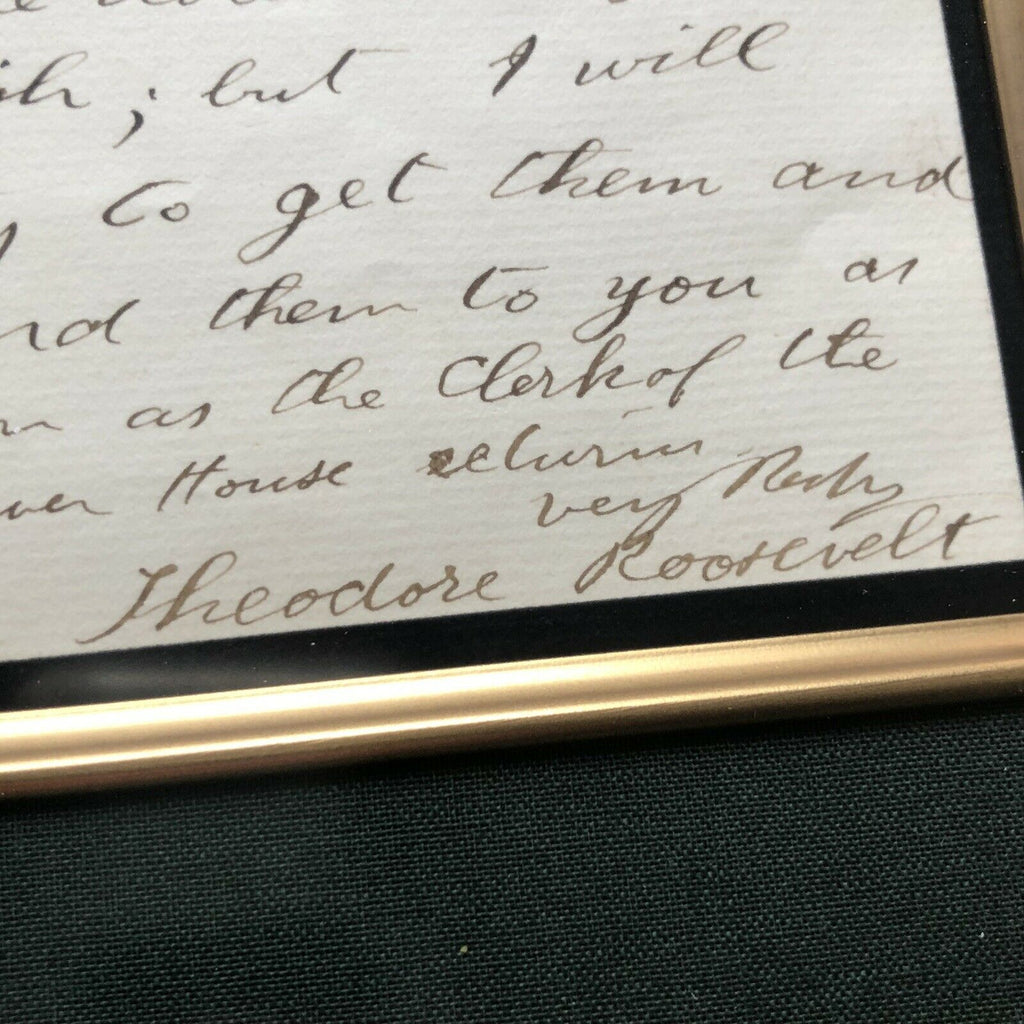 ; but I will
to get them and
them to you as
as the Clerk of the
House returns
very Resly
Theodore Roosevelt